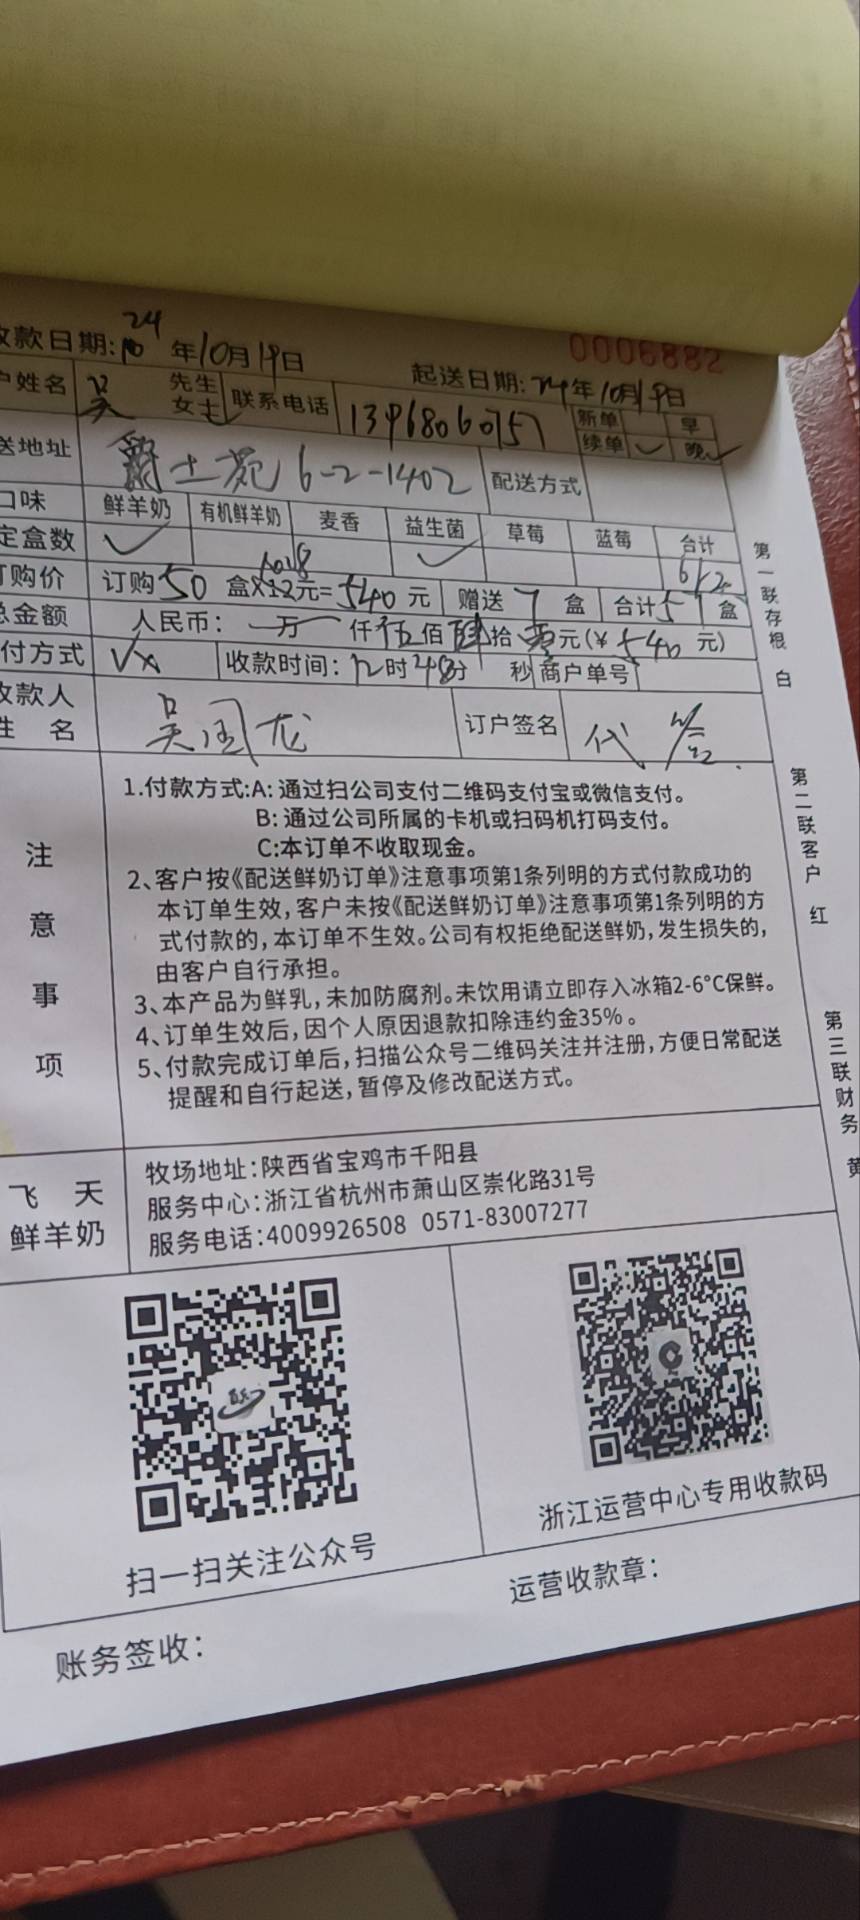 收款日期: 24年10月19日
0006882
起送日期: 24年10月19日
户姓名 吴 先生 女士 联系电话 13968060757 新单 续单 ✓ 早 晚 ✓
送地址 爵士苑 6-2-1402 配送方式
口味 鲜羊奶 有机鲜羊奶 麦香 益生菌 草莓 蓝莓 合计
定盒数 ✓ ✓
订购价 订购50盒X12元=540元 赠送7盒 合计57盒
总金额 人民币: 一万一仟伍佰肆拾零元(¥540元)
付方式 VX 收款时间: 12时48分 秒 商户单号
收款人姓名 吴国龙 订户签名 代签
注意事项
1.付款方式:A: 通过扫公司支付二维码支付宝或微信支付。
B: 通过公司所属的卡机或扫码机打码支付。
C:本订单不收取现金。
2、客户按《配送鲜奶订单》注意事项第1条列明的方式付款成功的
本订单生效,客户未按《配送鲜奶订单》注意事项第1条列明的方
式付款的,本订单不生效。公司有权拒绝配送鲜奶,发生损失的,
由客户自行承担。
3、本产品为鲜乳,未加防腐剂。未饮用请立即存入冰箱2-6°C保鲜。
4、订单生效后,因个人原因退款扣除违约金35%。
5、付款完成订单后,扫描公众号二维码关注并注册,方便日常配送
提醒和自行起送,暂停及修改配送方式。
飞天
鲜羊奶
牧场地址:陕西省宝鸡市千阳县
服务中心:浙江省杭州市萧山区崇化路31号
服务电话:4009926508 0571-83007277
扫一扫关注公众号
浙江运营中心专用收款码
账务签收:
运营收款章:
第一联存根 白
第二联客户 红
第三联财务 黄